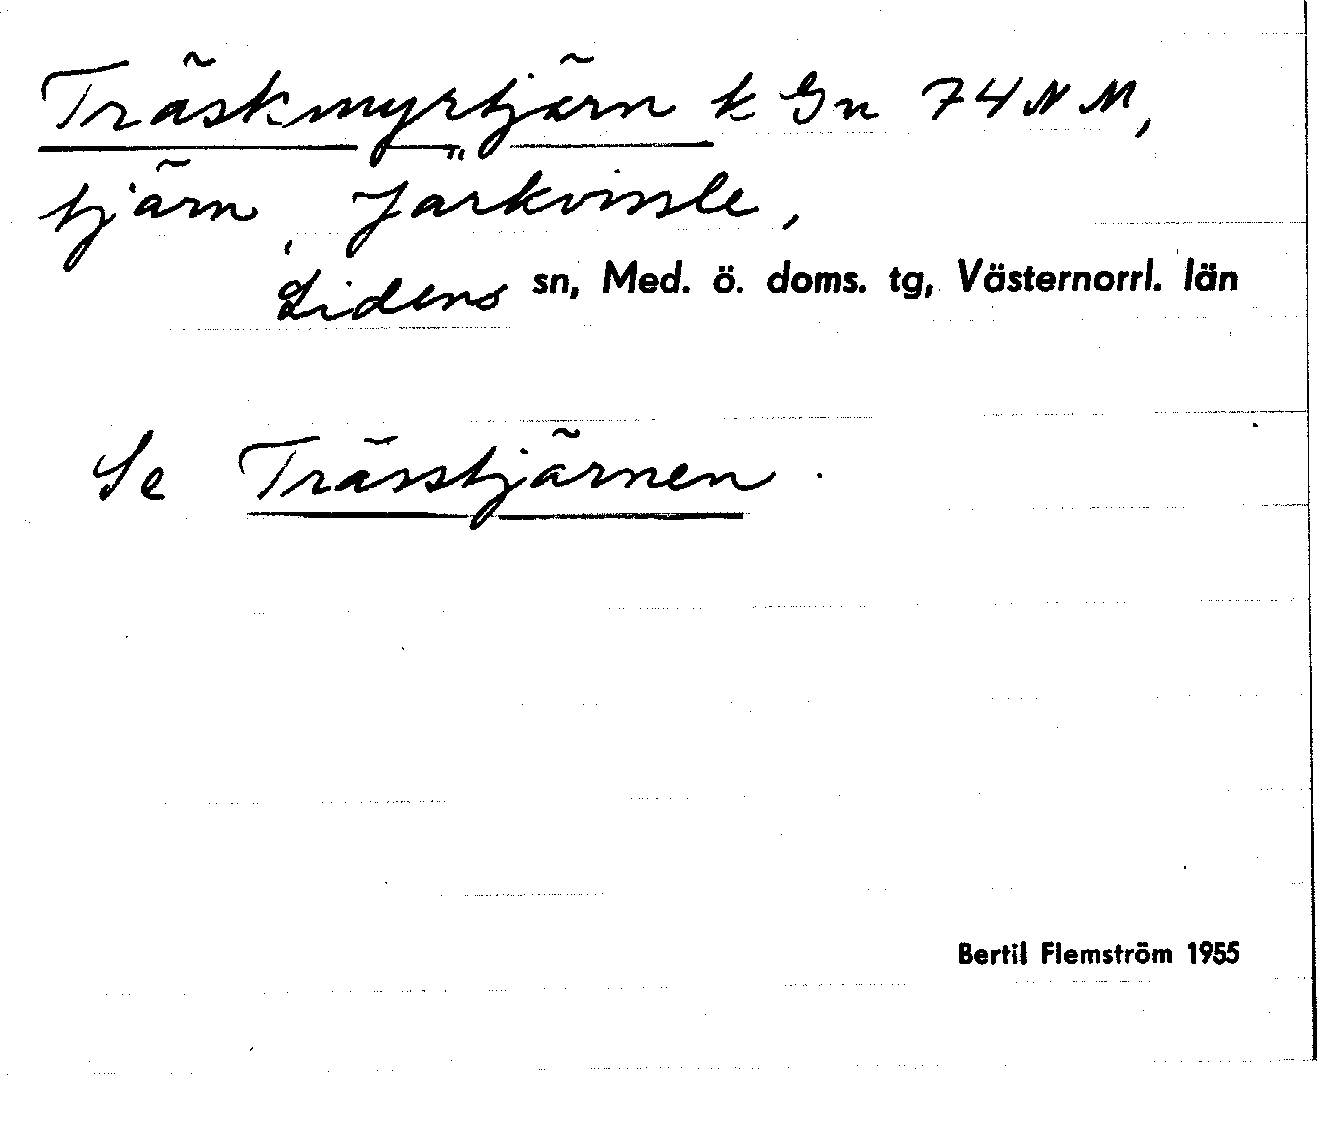 Träskmyrtjärn k Gn 74 NM,
tjärn, Järkvissle,
Lidens sn, Med. ö. doms. tg, Västernorrl. län
Se Trässtjärnen.
Bertil Flemström 1955